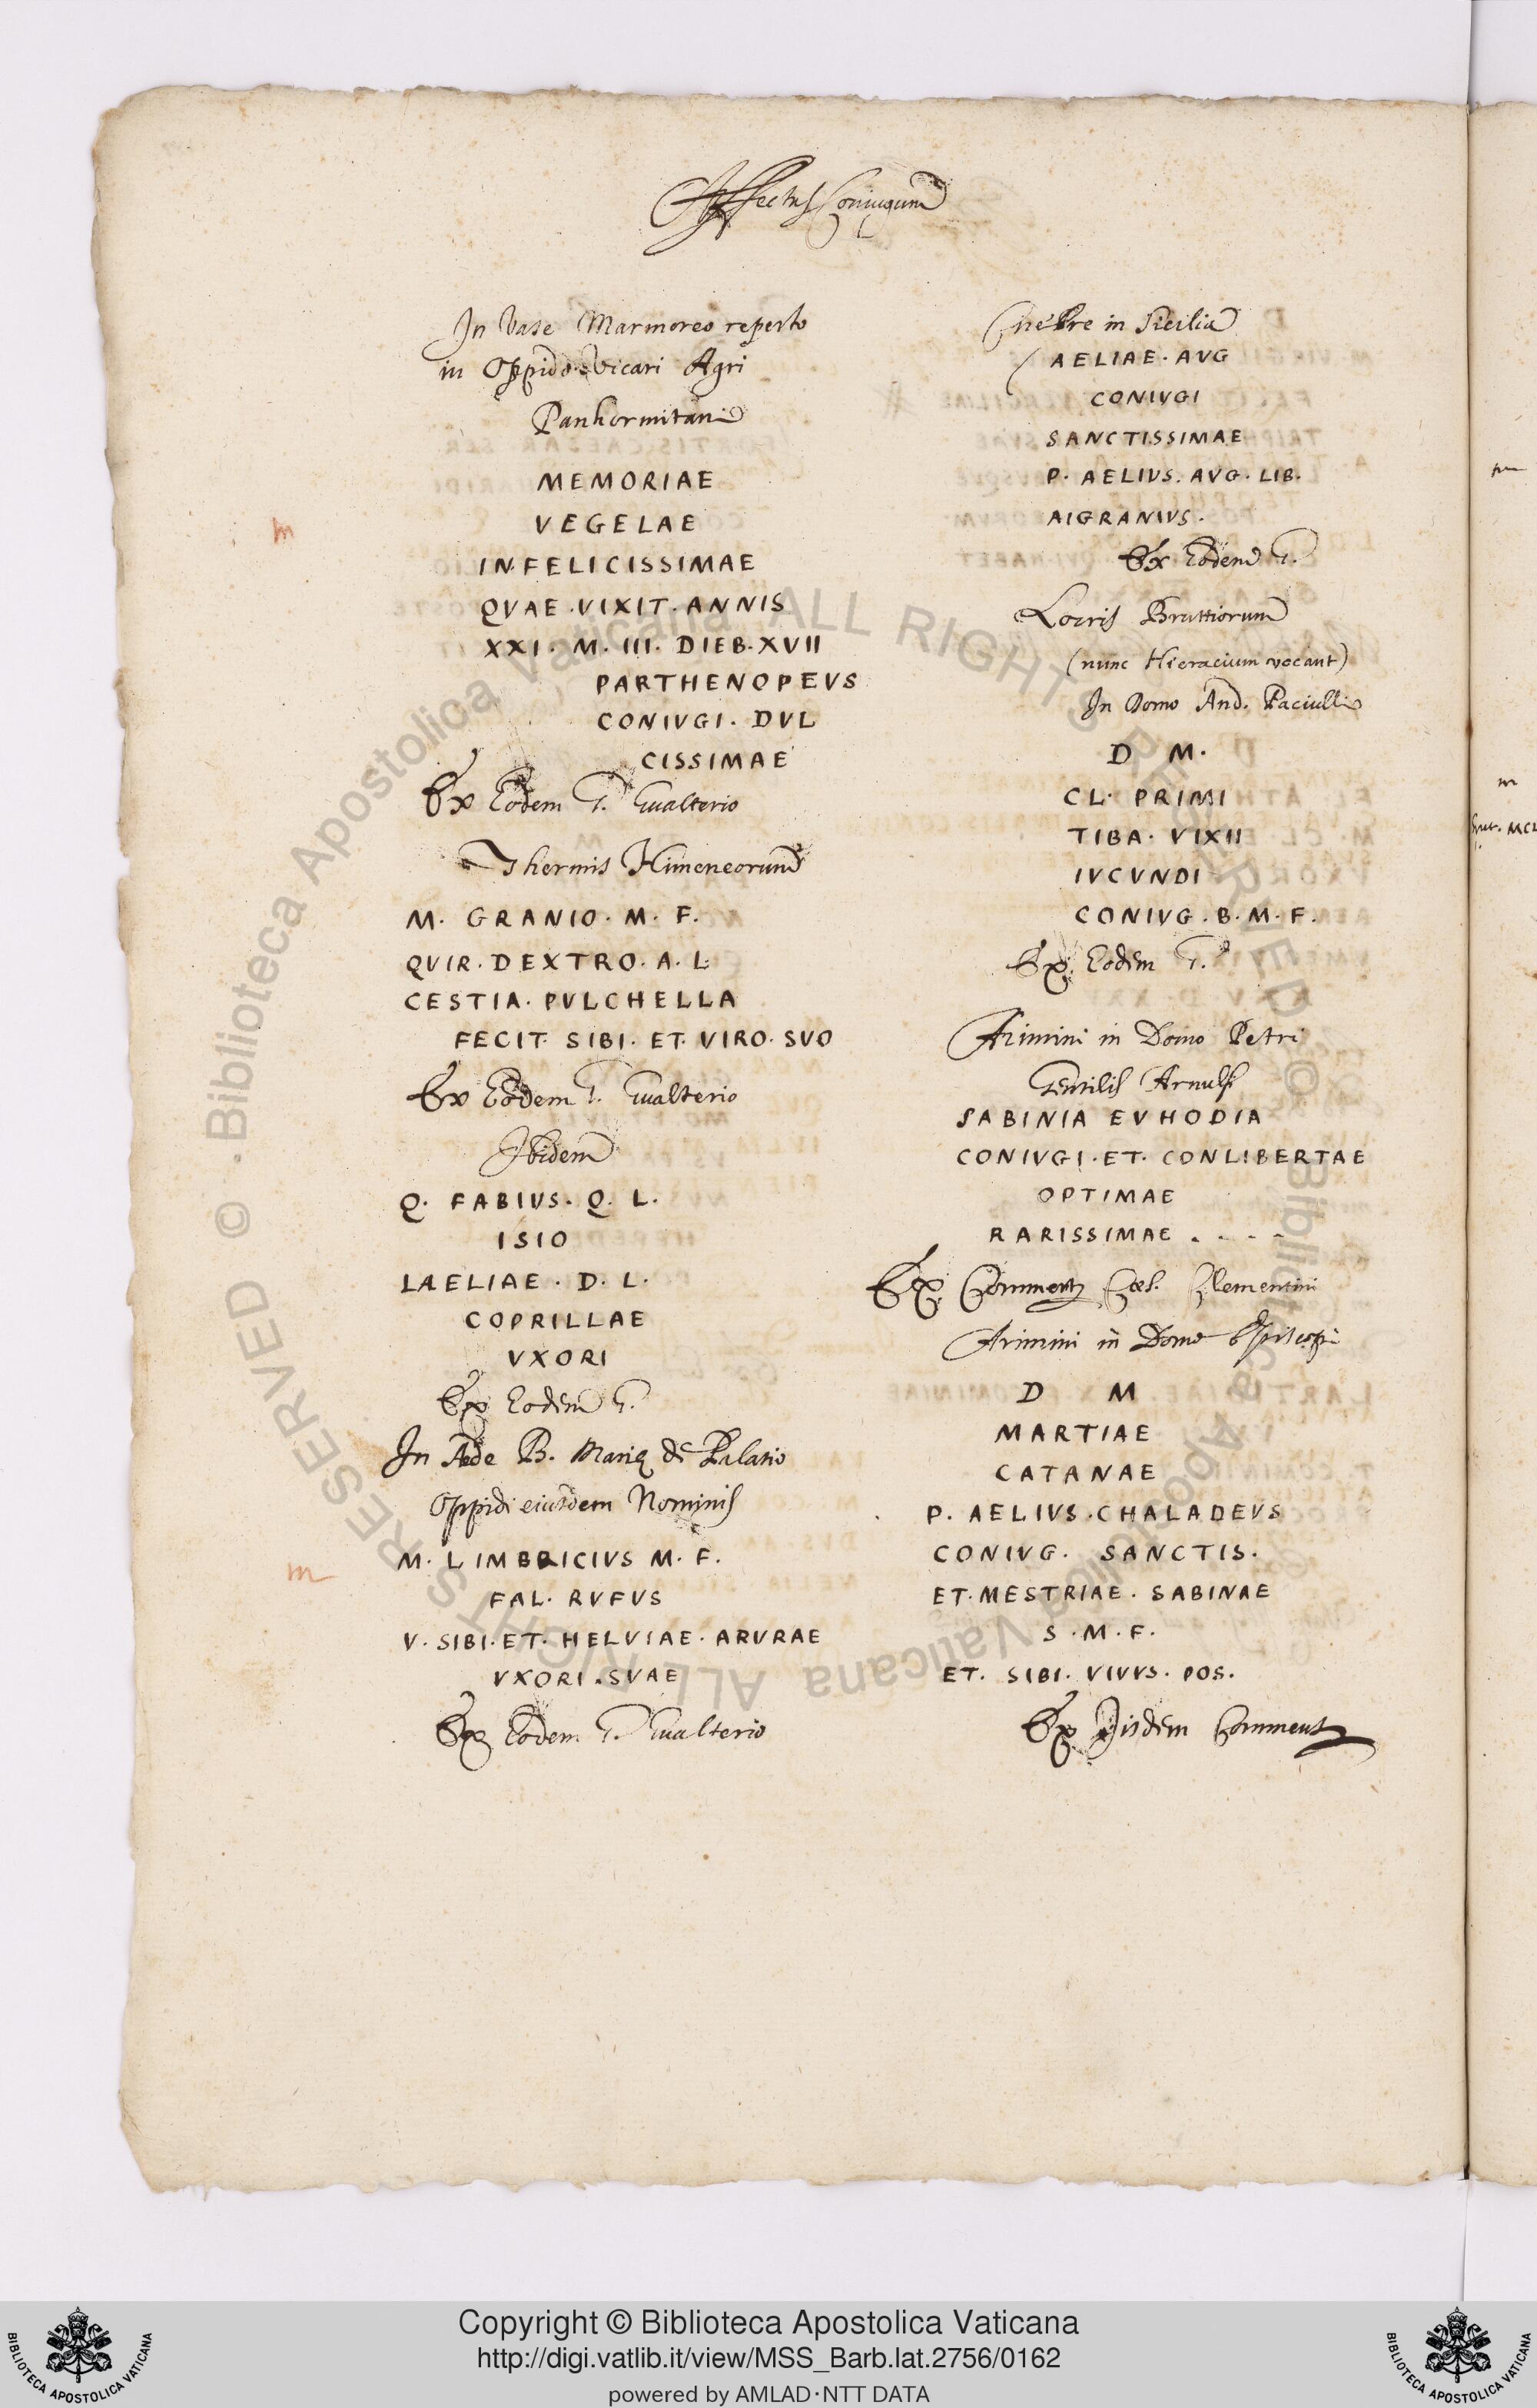 Affectus Coniugum
In Vase Marmoreo reperto
in Oppido Vicari Agri
Panhormitani
MEMORIAE
VEGELAE
IN.FELICISSIMAE
QVAE . VIXIT . ANNIS
XXI . M . III . DIEB . XVII
PARTHENOPEVS
CONIVGI . DVL
CISSIMAE
Ex Eodem G. Gualterio
Thermis Himeneorum
M . GRANIO . M . F .
QVIR . DEXTRO . A . L
CESTIA . PVLCHELLA
FECIT . SIBI . ET . VIRO . SVO
Ex Eodem G. Gualterio
Ibidem
Q . FABIVS . Q . L .
ISIO
LAELIAE . D . L .
COPRILLAE
VXORI
Ex Eodem G.
In Aede B. Marię de Palatio
Oppidi eiusdem Nominis
M . LIMBRICIVS M . F .
FAL . RVFVS
V . SIBI . ET . HELVIAE . ARVRAE
VXORI . SVAE
Ex Eodem G. Gualterio
in Sicilia
AELIAE . AVG
CONIVGI
SANCTISSIMAE
P . AELIVS . AVG . LIB .
AIGRANIVS .
Ex Eodem G.
Locris Bruttiorum
(nunc Hieracium vocant)
In Domo And. Paciulli
D M .
CL . PRIMI
TIBA . VIXII
IVCVNDI
CONIVG . B . M . F .
Ex Eodem G.
Arimini in Domo Petri
Gentilis Arnulfi
SABINIA EVHODIA
CONIVGI . ET . CONLIBERTAE
OPTIMAE
RARISSIMAE . . . .
Ex Comment Cęs. Clementini
Arimini in Domo Episcopi
D M
MARTIAE
CATANAE
P . AELIVS . CHALADEVS
CONIVG . SANCTIS .
ET . MESTRIAE . SABINAE
S . M . F .
ET . SIBI . VIVVS . POS .
Ex Iisdem Comment
m
m
m
© Biblioteca Apostolica Vaticana ALL RIGHTS RESERVED
© Biblioteca Apostolica Vaticana ALL RIGHTS RESERVED
Copyright © Biblioteca Apostolica Vaticana
http://digi.vatlib.it/view/MSS_Barb.lat.2756/0162
powered by AMLAD·NTT DATA
BIBLIOTECA APOSTOLICA VATICANA
BIBLIOTECA APOSTOLICA VATICANA